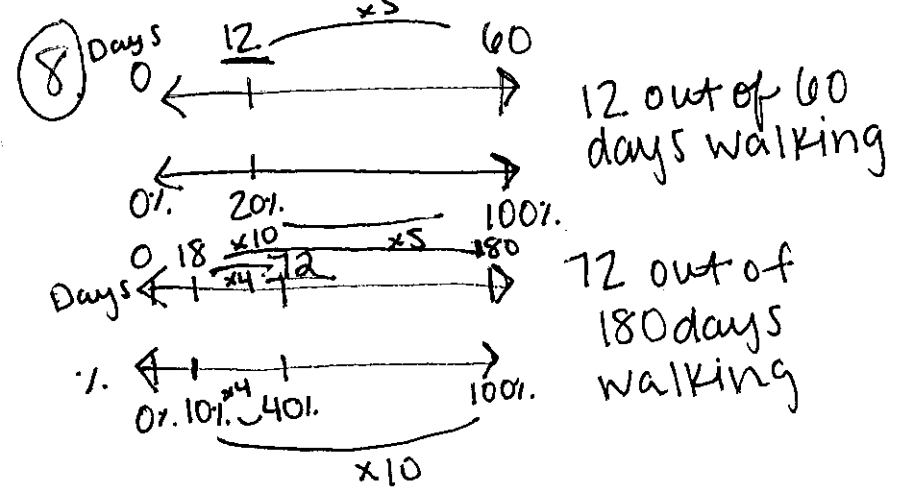 8 Days
x5
0 12 60
12 out of 60
days walking
0% 20% 100%
x5
0 18 x10 180
Days x4 72
72 out of
180 days
walking
%
0% 10% x4 40% 100%
x10